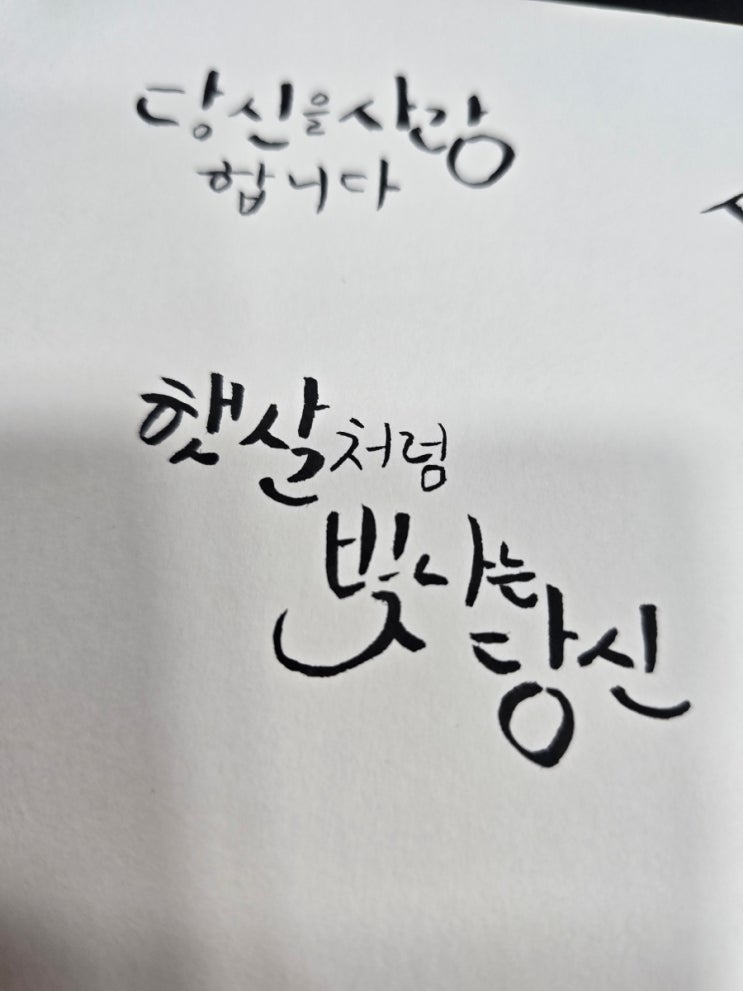 당신을사랑
합니다
햇살처럼
빛나는
당신